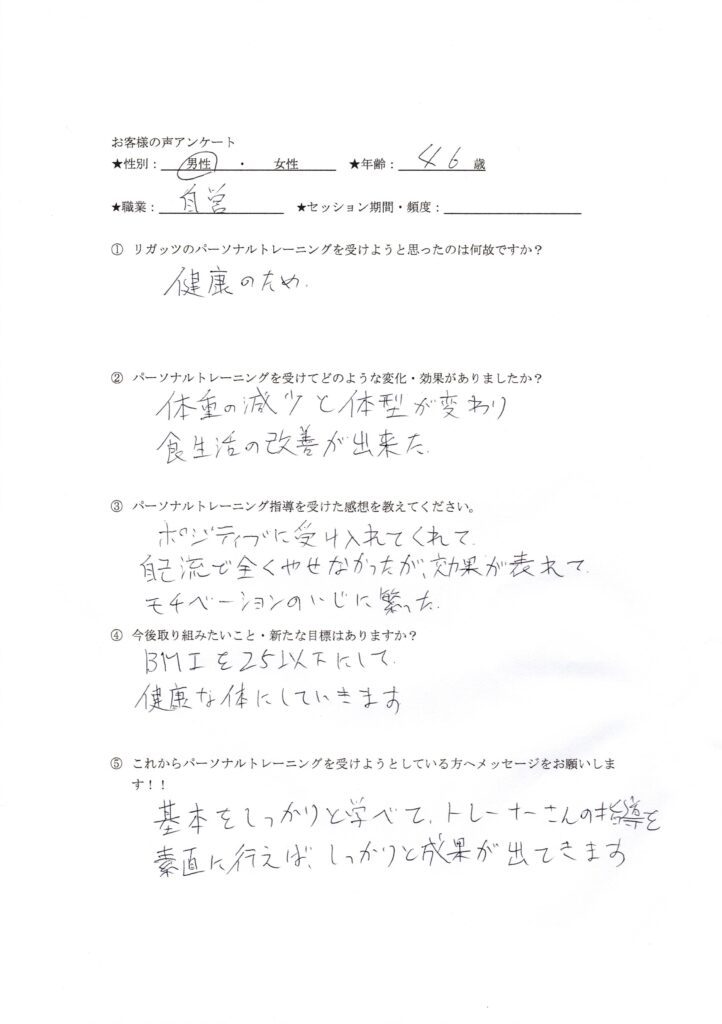 お客様の声アンケート
★性別： 男性 ・ 女性 ★年齢： 46 歳
★職業： 自営 ★セッション期間・頻度：
① リガッツのパーソナルトレーニングを受けようと思ったのは何故ですか？
健康のため.
② パーソナルトレーニングを受けてどのような変化・効果がありましたか？
体重の減少と体型が変わり
食生活の改善が出来た.
③ パーソナルトレーニング指導を受けた感想を教えてください。
ポジティブに受け入れてくれて.
自己流で全くやせなかったが、効果が表れて.
モチベーションのいじに繋った.
④ 今後取り組みたいこと・新たな目標はありますか？
BMIを25以下にして.
健康な体にしていきます
⑤ これからパーソナルトレーニングを受けようとしている方へメッセージをお願いしま
す！！
基本をしっかりと学べて、トレーナーさんの指導を
素直に行えば、しっかりと成果が出てきます